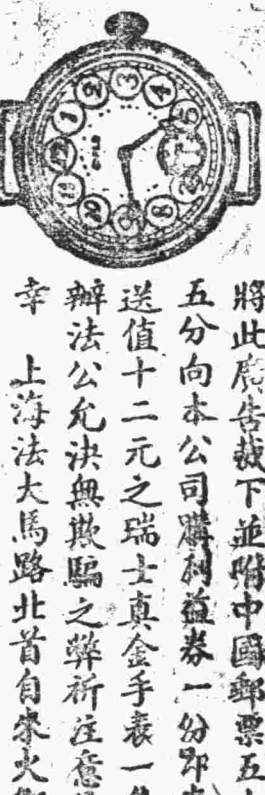 將此廣告裁下並附中國郵票五
五分向本公司購利益券一份即
送值十二元之瑞士真金手表一
辦法公允決無欺騙之弊祈注意
幸 上海法大馬路北首自來火